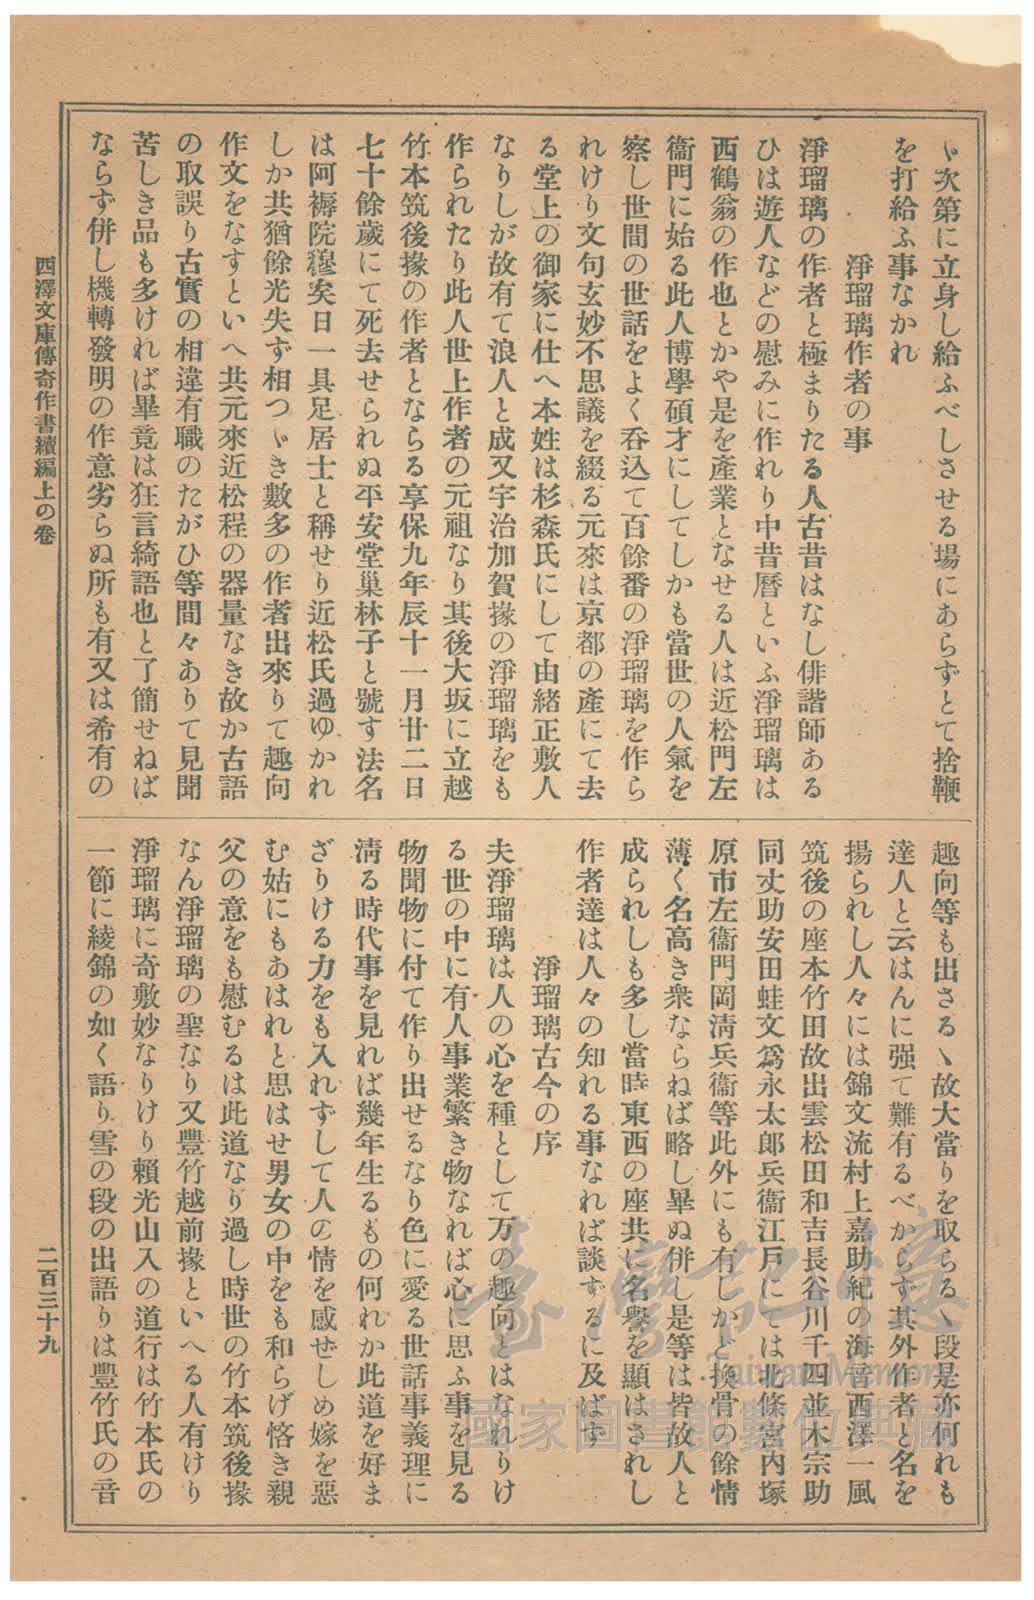 ゞ次第に立身し給ふべしさせる場にあらずとて捨鞭
を打給ふ事なかれ
淨瑠璃作者の事
淨瑠璃の作者と極まりたる人古昔はなし俳諧師ある
ひは遊人などの慰みに作れり中昔曆といふ淨瑠璃は
西鶴翁の作也とかや是を產業となせる人は近松門左
衞門に始る此人博學碩才にしてしかも當世の人氣を
察し世間の世話をよく呑込て百餘番の淨瑠璃を作ら
れけり文句玄妙不思議を綴る元來は京都の產にて去
る堂上の御家に仕へ本姓は杉森氏にして由緖正敷人
なりしが故有て浪人と成又宇治加賀掾の淨瑠璃をも
作られたり此人世上作者の元祖なり其後大坂に立越
竹本筑後掾の作者とならる享保九年辰十一月廿二日
七十餘歲にて死去せられぬ平安堂巢林子と號す法名
は阿耨院穆矣日一具足居士と稱せり近松氏過ゆかれ
しか共猶餘光失ず相つゞき數多の作者出來りて趣向
作文をなすといへ共元來近松程の器量なき故か古語
の取誤り古實の相違有職のたがひ等間々ありて見聞
苦しき品も多ければ畢竟は狂言綺語也と了簡せねば
ならず併し機轉發明の作意劣らぬ所も有又は希有の
趣向等も出さるゝ故大當りを取らるゝ段是亦何れも
達人と云はんに强て難有るべからず其外作者と名を
揚られし人々には錦文流村上嘉助紀の海音西澤一風
筑後の座本竹田故出雲松田和吉長谷川千四並木宗助
同丈助安田蛙文爲永太郞兵衞江戶にては北條宮內塚
原市左衞門岡淸兵衞等此外にも有しかど換骨の餘情
薄く名高き衆ならねば略し畢ぬ併し是等は皆故人と
成られしも多し當時東西の座共に名譽を顯はされし
作者達は人々の知れる事なれば談ずるに及ばず
淨瑠璃古今の序
夫淨瑠璃は人の心を種として万の趣向とはなれりけ
る世の中に有人事業繁き物なれば心に思ふ事を見る
物聞物に付て作り出せるなり色に愛る世話事義理に
淸る時代事を見れば幾年生るもの何れか此道を好ま
ざりける力をも入れずして人の情を感ぜしめ嫁を惡
む姑にもあはれと思はせ男女の中をも和らげ悋き親
父の意をも慰むるは此道なり過し時世の竹本筑後掾
なん淨瑠璃の聖なり又豐竹越前掾といへる人有けり
淨瑠璃に奇敷妙なりけり賴光山入の道行は竹本氏の
一節に綾錦の如く語り雪の段の出語りは豐竹氏の音
西澤文庫傳奇作書續編上の卷
二百三十九
臺灣記憶
Taiwan Memory
國家圖書館數位典藏